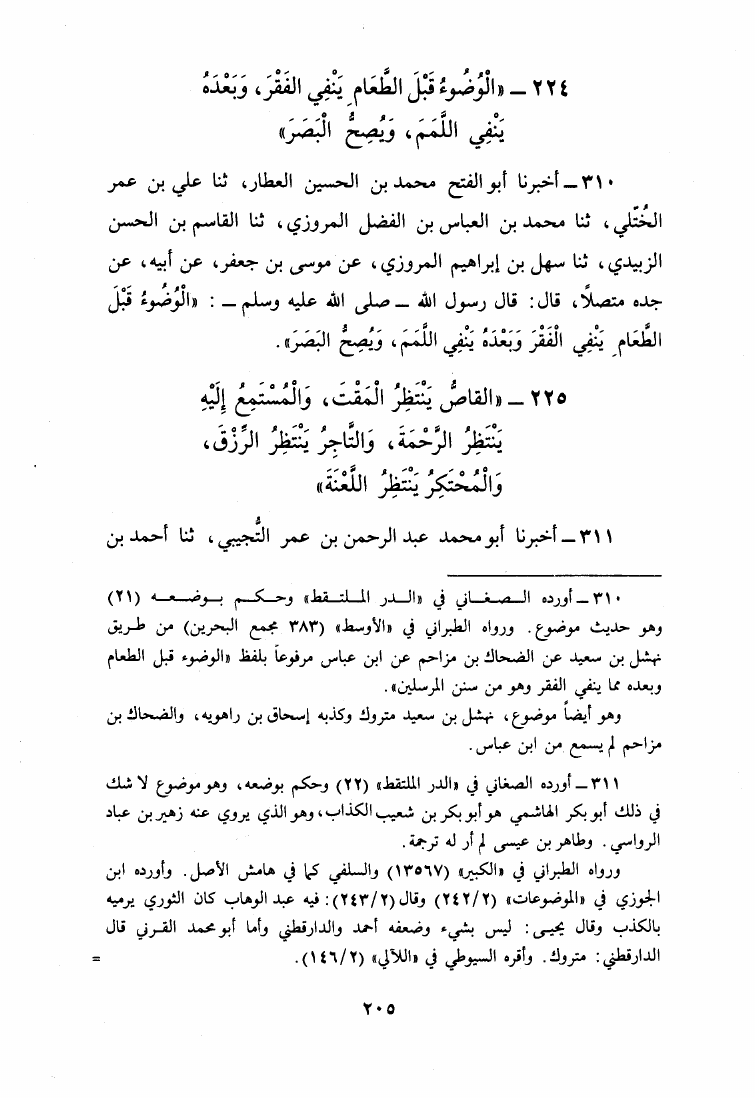 ٢٢٤ ــ «الْوُضُوءُ قَبْلَ الطَّعَامِ يَنْفِي الفَقْرَ، وَبَعْدَهُ
يَنْفِي اللَّمَمَ، وَيُصِحُّ الْبَصَرَ»
٣١٠ ــ أخبرنا أبو الفتح محمد بن الحسين العطار، ثنا علي بن عمر
الخُتّلي، ثنا محمد بن العباس بن الفضل المروزي، ثنا القاسم بن الحسن
الزبيدي، ثنا سهل بن إبراهيم المروزي، عن موسى بن جعفر، عن أبيه، عن
جده متصلاً، قال: قال رسول الله ــ صلى الله عليه وسلم ــ : «الْوُضُوءُ قَبْلَ
الطَّعَامِ يَنْفِي الْفَقْرَ وَبَعْدَهُ يَنْفِي اللَّمَمَ، وَيُصِحُّ البَصَرَ».
٢٢٥ ــ «القاصُّ يَنْتَظِرُ الْمَقْتَ، وَالْمُسْتَمِعُ إِلَيْهِ
يَنْتَظِرُ الرَّحْمَةَ، وَالتَّاجِرُ يَنْتَظِرُ الرِّزْقَ،
وَالْمُحْتَكِرُ يَنْتَظِرُ اللَّعْنَةَ»
٣١١ ــ أخبرنا أبو محمد عبد الرحمن بن عمر التُّجيبي، ثنا أحمد بن
٣١٠ ــ أورده الصغاني في «الدر الملتقط» وحكم بوضعه (٢١)
وهو حديث موضوع. ورواه الطبراني في «الأوسط» (٣٨٣ مجمع البحرين) من طريق
نهشل بن سعيد عن الضحاك بن مزاحم عن ابن عباس مرفوعاً بلفظ «الوضوء قبل الطعام
وبعده مما ينفي الفقر وهو من سنن المرسلين».
وهو أيضاً موضوع، نهشل بن سعيد متروك وكذبه إسحاق بن راهويه، والضحاك بن
مزاحم لم يسمع من ابن عباس.
٣١١ ــ أورده الصغاني في «الدر الملتقط» (٢٢) وحكم بوضعه، وهو موضوع لا شك
في ذلك أبو بكر الهاشمي هو أبو بكر بن شعيب الكذاب، وهو الذي يروي عنه زهير بن عباد
الرواسي. وطاهر بن عيسى لم أر له ترجمة.
ورواه الطبراني في «الكبير» (١٣٥٦٧) والسلفي كما في هامش الأصل. وأورده ابن
الجوزي في «الموضوعات» (٢٤٢/٢) وقال (٢٤٣/٢): فيه عبد الوهاب كان الثوري يرميه
بالكذب وقال يحيى: ليس بشيء وضعفه أحمد والدارقطني وأما أبو محمد القرني قال
الدارقطني: متروك. وأقره السيوطي في «اللآلي» (١٤٦/٢). =
٢٠٥